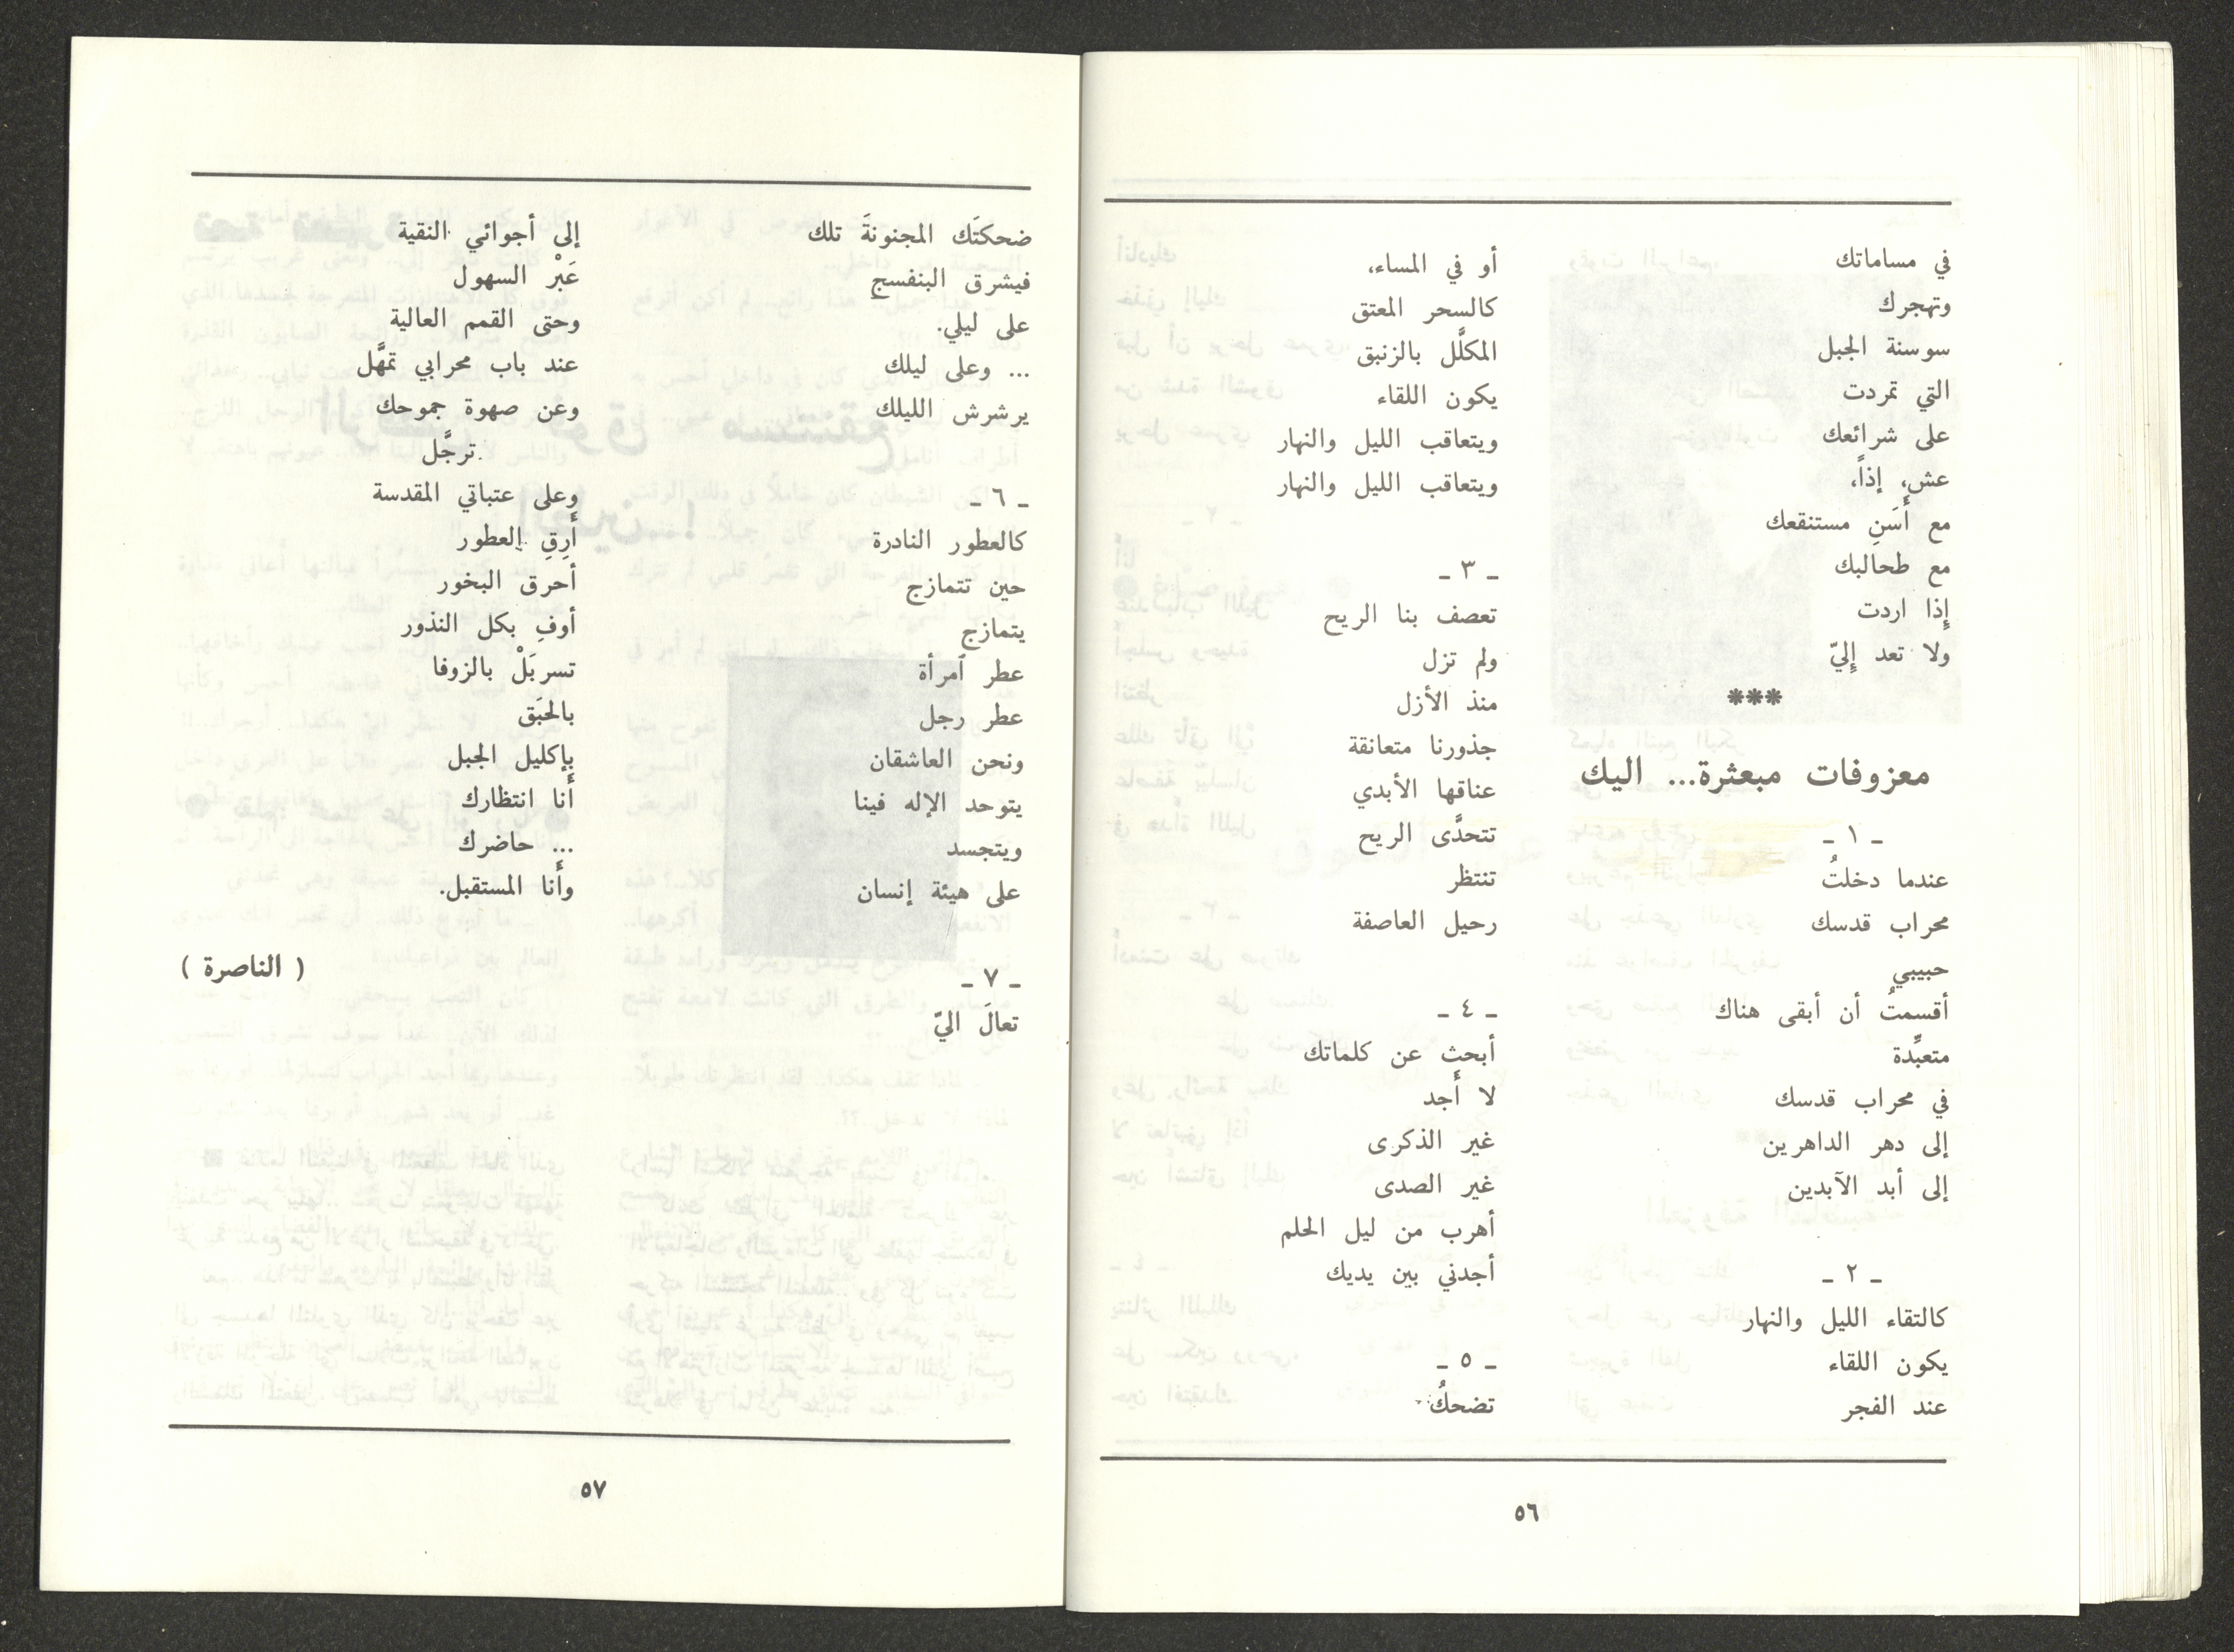 في مساماتك
وتهجرك
سوسنة الجبل
التي تمردت
على شرائعك
عش، إذاً،
مع أَسَنِ مستنقعك
مع طحالبك
إِذا اردت
ولا تعد إِليّ
***
معزوفات مبعثرة... اليك
ـ ١ ـ
عندما دخلتُ
محراب قدسك
حبيبي
أقسمتُ أن أبقى هناك
متعبِّدة
في محراب قدسك
إلى دهر الداهرين
إلى أبد الآبدين
ـ ٢ ـ
كالتقاء الليل والنهار
يكون اللقاء
عند الفجر
أو في المساء،
كالسحر المعتق
المكلَّل بالزنبق
يكون اللقاء
ويتعاقب الليل والنهار
ويتعاقب الليل والنهار
ـ ٣ ـ
تعصف بنا الريح
ولم تزل
منذ الأزل
جذورنا متعانقة
عناقها الأبدي
تتحدَّى الريح
تنتظر
رحيل العاصفة
ـ ٤ ـ
أبحث عن كلماتك
لا أجد
غير الذكرى
غير الصدى
أهرب من ليل الحلم
أجدني بين يديك
ـ ٥ ـ
تضحكُ
٥٦
ضحكتَك المجنونةَ تلك
فيشرق البنفسج
على ليلي.
... وعلى ليلك
يرشرش الليلك
ـ ٦ ـ
كالعطور النادرة
حين تتمازج
يتمازج
عطر ٱمرأة
عطر رجل
ونحن العاشقان
يتوحد الإله فينا
ويتجسد
على هيئة إنسان
ـ ٧ ـ
تعالَ اليّ
إلى أجوائي النقية
عَبْر السهول
وحتى القمم العالية
عند باب محرابي تمهَّل
وعن صهوة جموحك
ترجَّل
وعلى عتباتي المقدسة
أَرِقِ العطور
أحرق البخور
أوفِ بكل النذور
تسربَلْ بالزوفا
بالحبَق
بإكليل الجبل
أَنا انتظارك
... حاضرك
وأَنا المستقبل.
( الناصرة )
٥٧